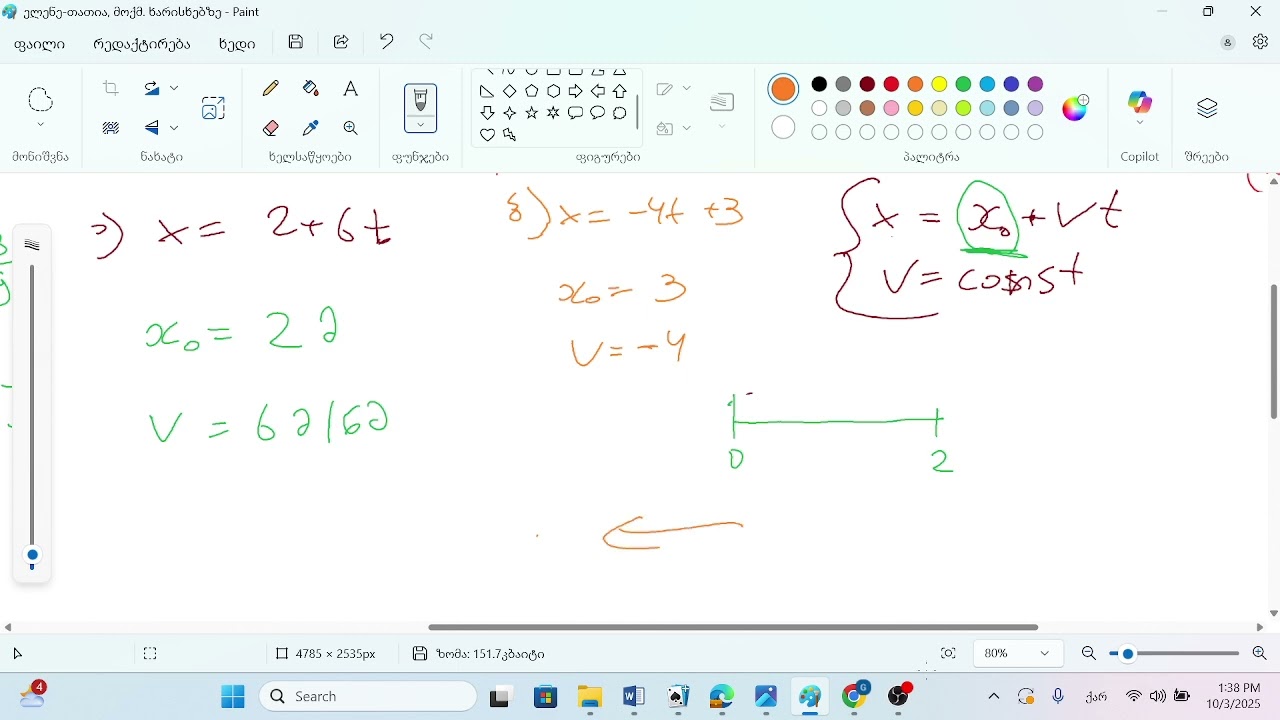 ელენე-თათია, მოქმ. წარისხებზე - Paint
ფაილი რედაქტირება ხედი
მონიშვნა ნახატი ხელსაწყოები ფუნჯები ფიგურები პალიტრა Copilot შრეები
ა) x = 2+6t
x₀ = 2 მ
v = 6 მ/წმ
ბ) x = -4t +3
x₀ = 3
v = -4
x = x₀ + vt
v = const
0 2
4785 × 2535px ზომა: 151.7კბაიტი 80%
4 Search ქარ 1:38 PM
10/3/2025